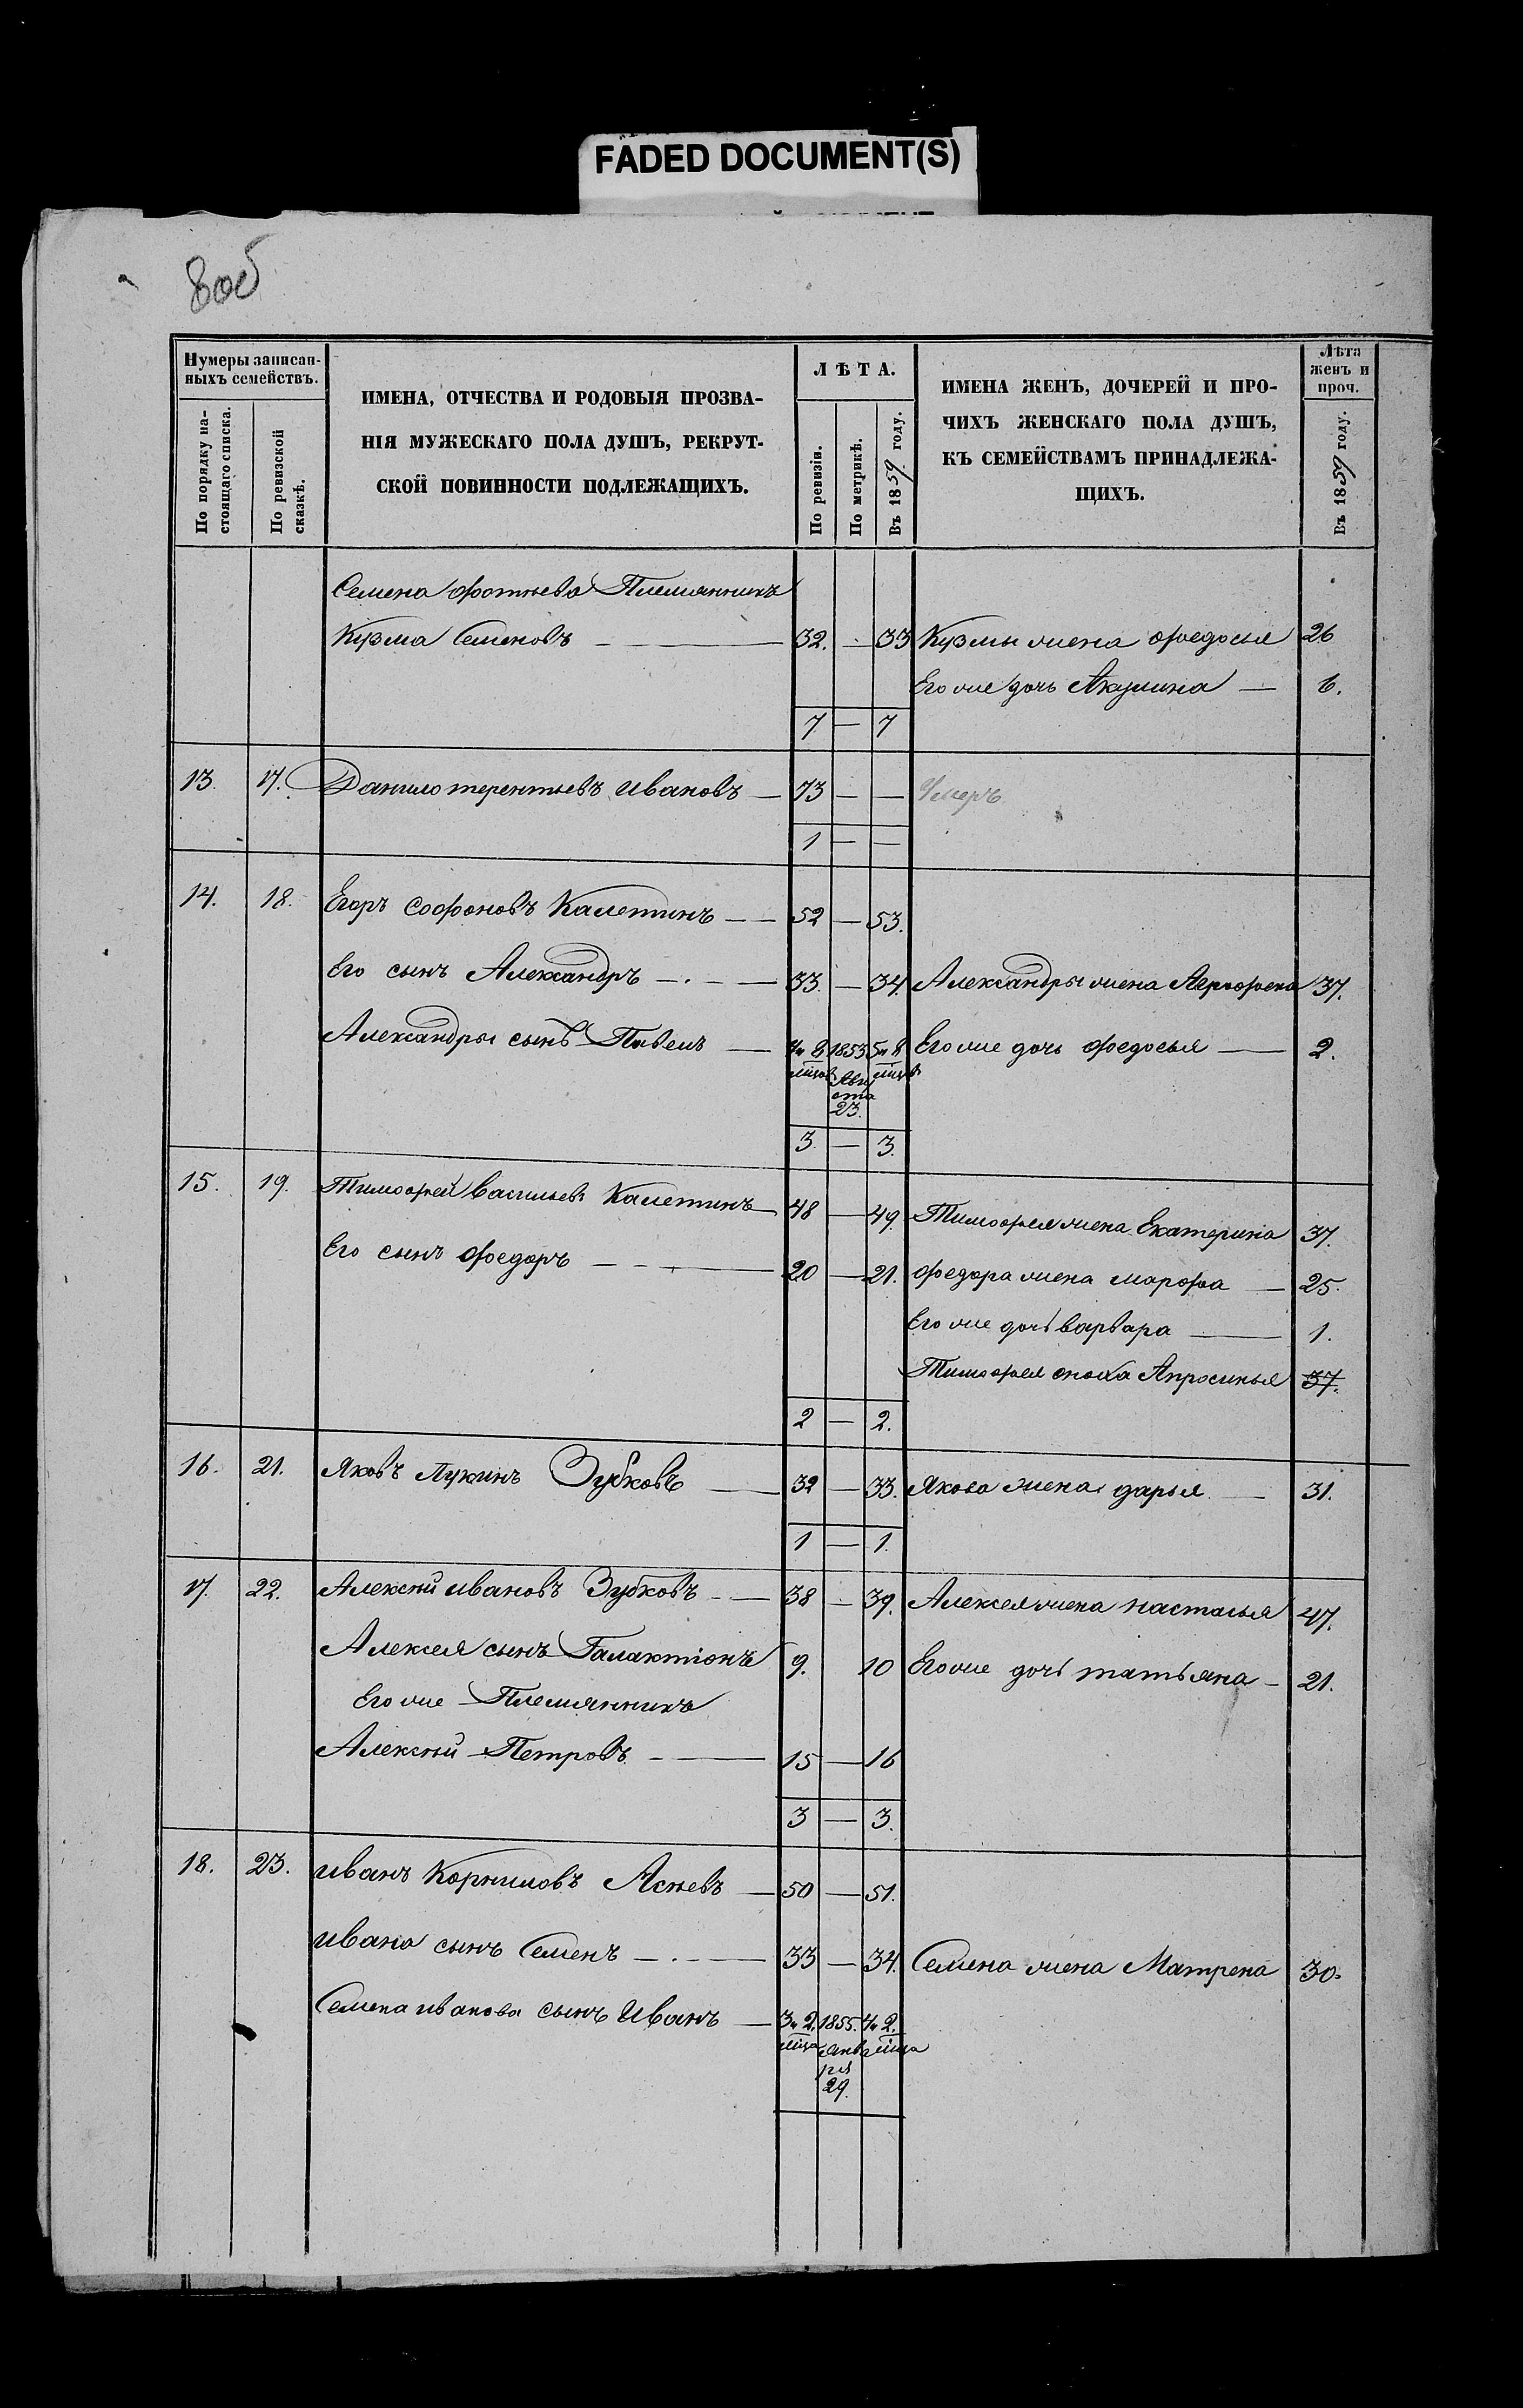 FADED DOCUMENT(S)
8 об
Нумеры записан-
ныхъ семействъ.
По порядку на-
стоящаго списка.
По ревизской
сказкѣ.
ИМЕНА, ОТЧЕСТВА И РОДОВЫЯ ПРОЗВА-
НІЯ МУЖЕСКАГО ПОЛА ДУШЪ, РЕКРУТ-
СКОЙ ПОВИННОСТИ ПОДЛЕЖАЩИХЪ.
ЛѢТА.
По ревизіи.
По метрикѣ.
Въ 1859 году.
ИМЕНА ЖЕНЪ, ДОЧЕРЕЙ И ПРО-
ЧИХЪ ЖЕНСКАГО ПОЛА ДУШЪ,
КЪ СЕМЕЙСТВАМЪ ПРИНАДЛЕЖА-
ЩИХЪ.
Лѣта
женъ и
проч.
Въ 1859 году.
Семена Фотіева Племянникъ
Кузма Семеновъ — 32. — 33 Кузмы жена Федосья 26
Его же дочь Акулина — 6.
7 — 7
13. 17. Данило терентьевъ Ивановъ — 73 — — Умеръ
1 — —
14. 18. Егоръ Софоновъ Калетинъ — 52 — 53.
Его сынъ Александръ — 33. — 34. Александры жена 37.
Александры сынъ Павелъ — 4 и 8 1853 5 и 8 Его же дочь Федосья — 2.
мцов Авгу мцов
ста
23.
3. — 3.
15. 19. Тимофей Васильевъ Калетинъ 48 — 49. Тимофея жена Екатерина 37.
Его сынъ Федоръ — 20 — 21. Федора жена марфа — 25.
Его же дочь варвара — 1.
Тимофея сноха Апросинья 37.
2 — 2.
16. 21. Яковъ Лукинъ Зубковъ — 32 — 33. Якова жена дарья — 31.
1 — 1.
17. 22. Алексѣй Ивановъ Зубковъ — 38 — 39. Алексея жена настасья 47.
Алексея сынъ Галактіонъ 9. 10 Его же дочь татьяна — 21.
Его же Племянникъ
Алексѣй Петровъ — 15 — 16
3 — 3.
18. 23. Иванъ Корниловъ — 50 — 51.
Ивана сынъ Семенъ — 33 — 34. Семена жена Матрена 30.
Семена иванова сынъ Иванъ — 3 и 2. 1855. 4 и 2.
мца Янва мца
ря
29.